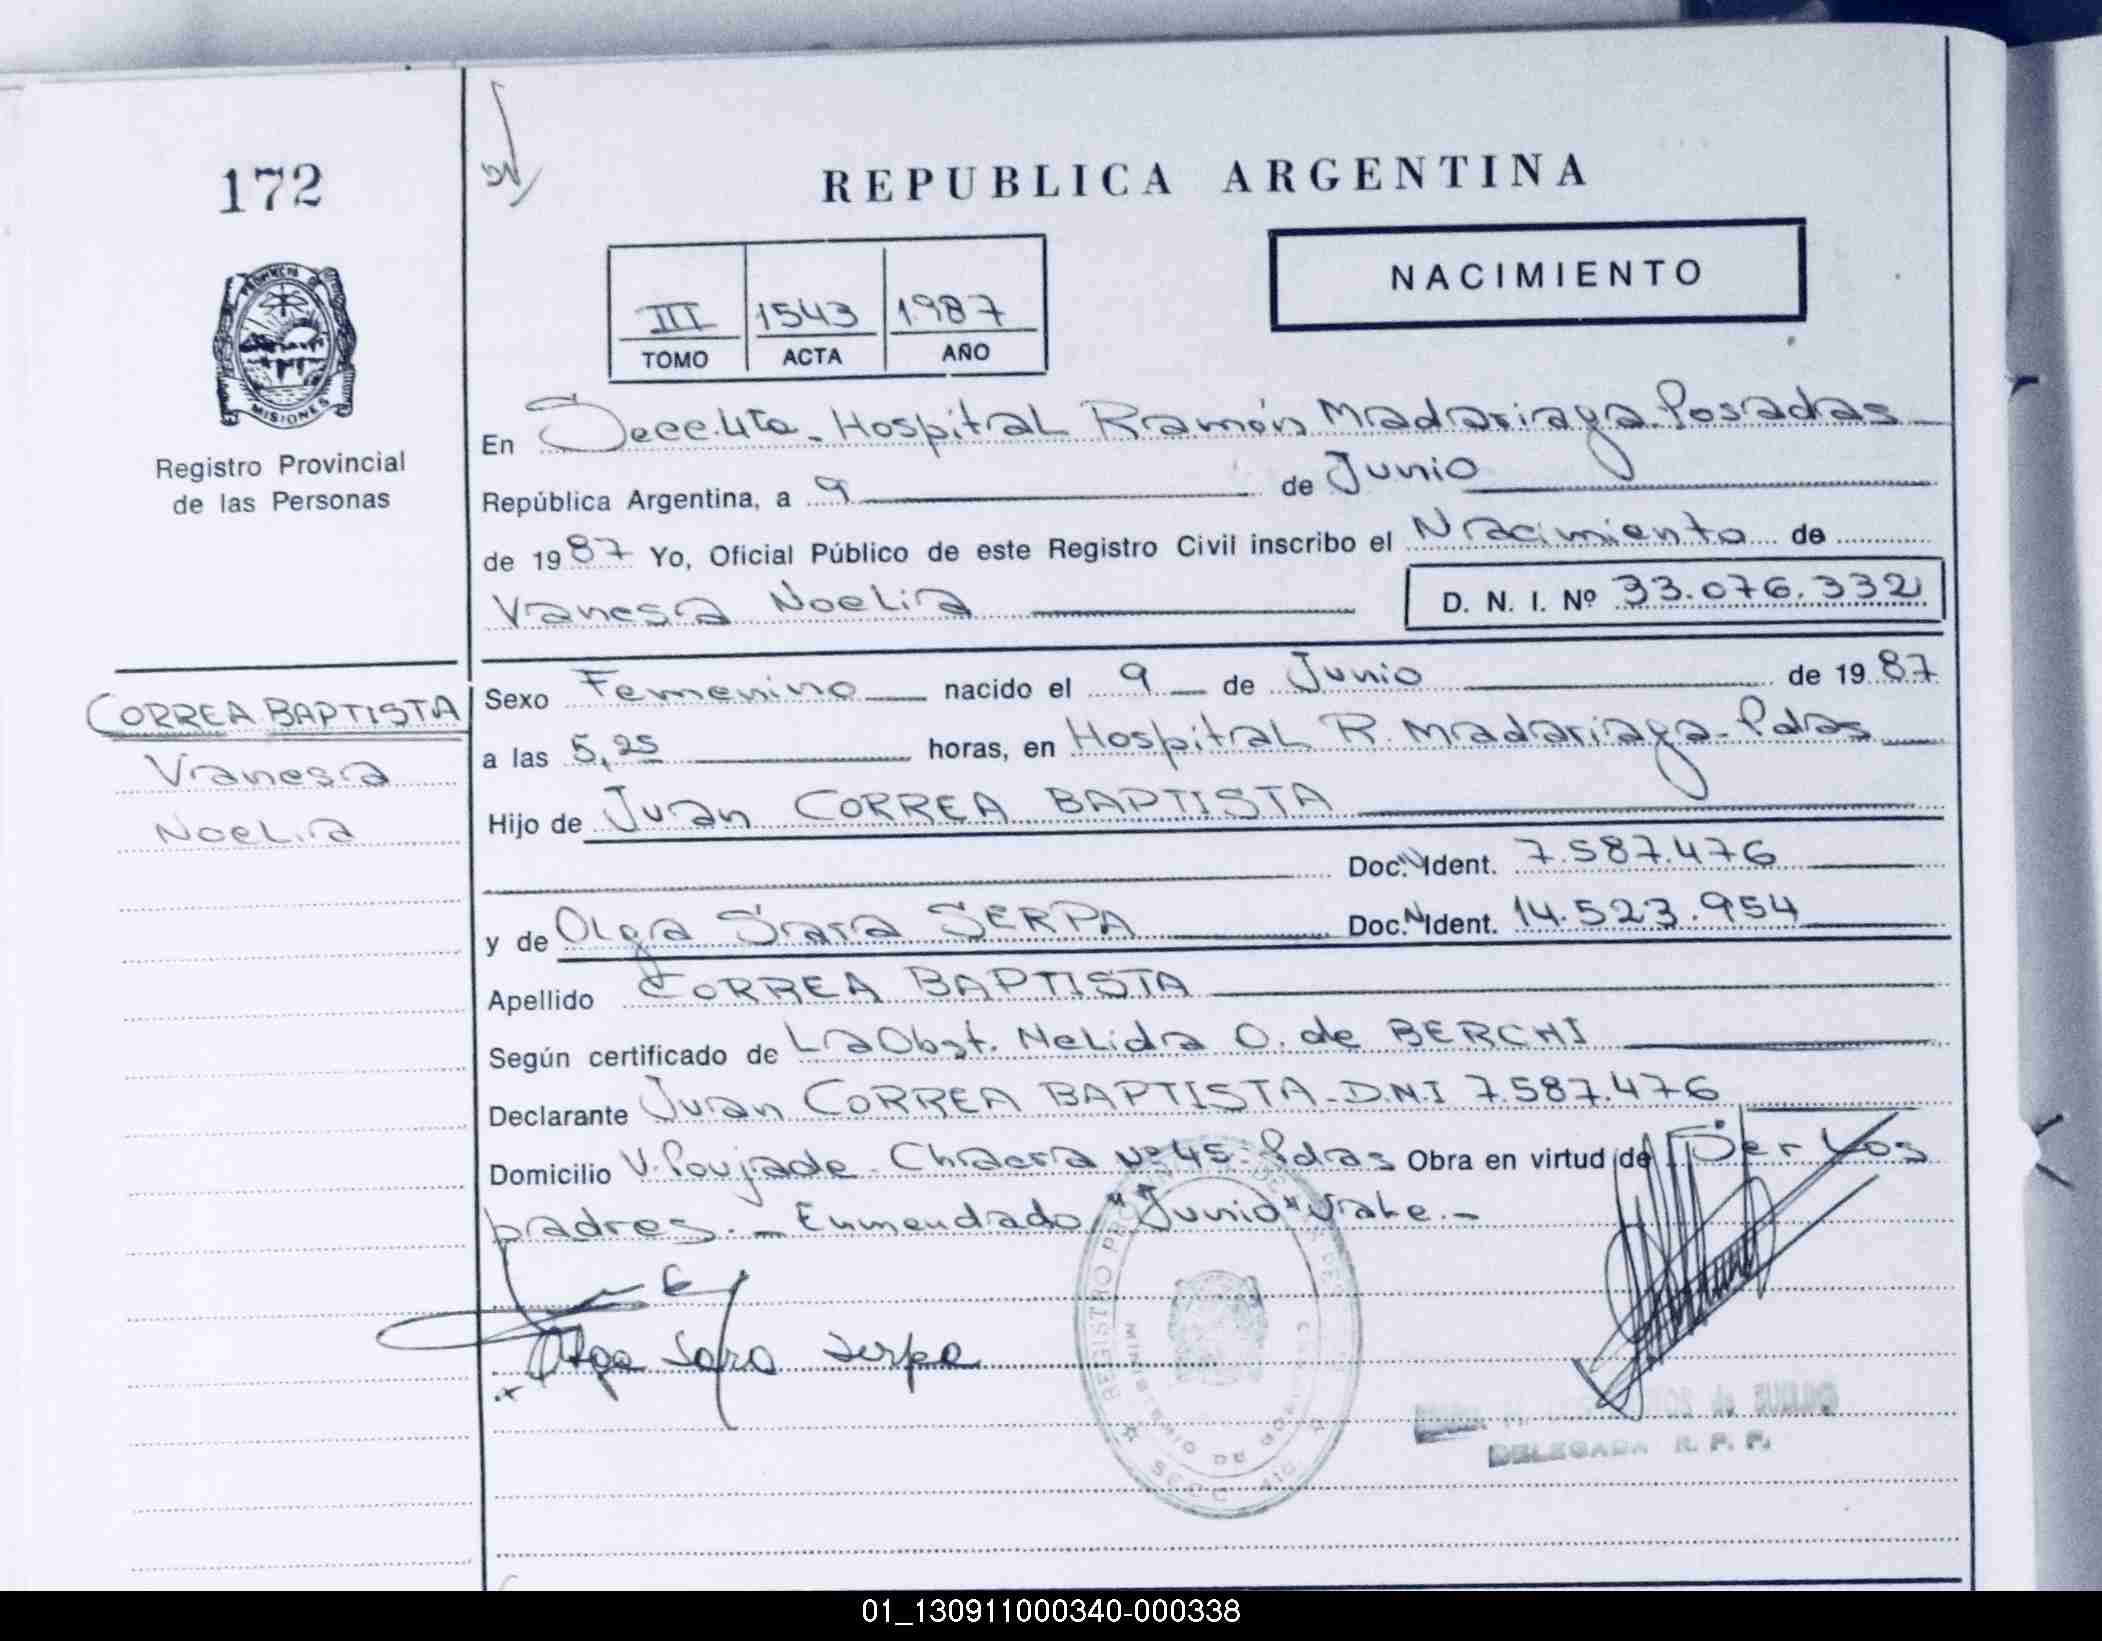 172
REPUBLICA ARGENTINA
NACIMIENTO
III 1543 1987
TOMO ACTA AÑO
PROVINCIA DE MISIONES
Registro Provincial
de las Personas
En Secc. 4ta. Hospital Ramón Madariaga. Posadas
República Argentina, a 9 de Junio
de 1987 Yo, Oficial Público de este Registro Civil inscribo el Nacimiento de
Vanesa Noelia D. N. I. Nº 33.076.332
CORREA BAPTISTA
Vanesa
Noelia
Sexo Femenino nacido el 9 de Junio de 1987
a las 5,25 horas, en Hospital R. Madariaga - Pdas
Hijo de Juan CORREA BAPTISTA
Doc. N. Ident. 7.587.476
y de Olga Sara SERPA Doc. N. Ident. 14.523.954
Apellido CORREA BAPTISTA
Según certificado de La Obst. Nelida O. de BERCHI
Declarante Juan CORREA BAPTISTA - D.N.I 7.587.476
Domicilio V. Poujade - Chacra Nº 45 - Pdas Obra en virtud de Ser los
padres. - Enmendado "Junio" Vale. -
Olga Sara Serpa
REGISTRO
MINISTERIO DE
SECC. 4ta
DELEGADA R. P. P.
01_130911000340-000338